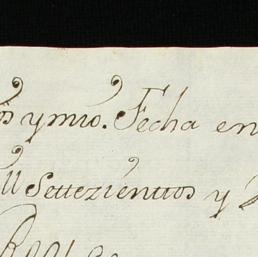 os ymio. Fecha en
ll Settezienttos y